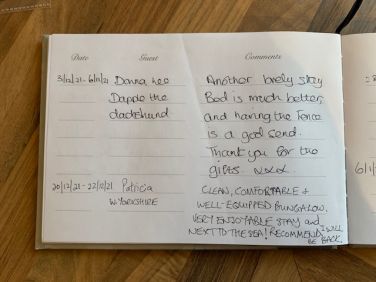 Date Guest Comments
3/12/21 - 6/12/21 Donna Lee Another lovely stay
Dappie the Bed is much better,
dachshund. and having the Fence
is a god send.
Thank you for the
gifts. xxxx.
20/12/21 - 22/12/21 Patricia CLEAN, COMFORTABLE +
W. YORKSHIRE WELL-EQUIPPED BUNGALOW.
VERY ENJOYABLE STAY and
NEXT TO THE SEA! RECOMMEND, I WILL
BE BACK.